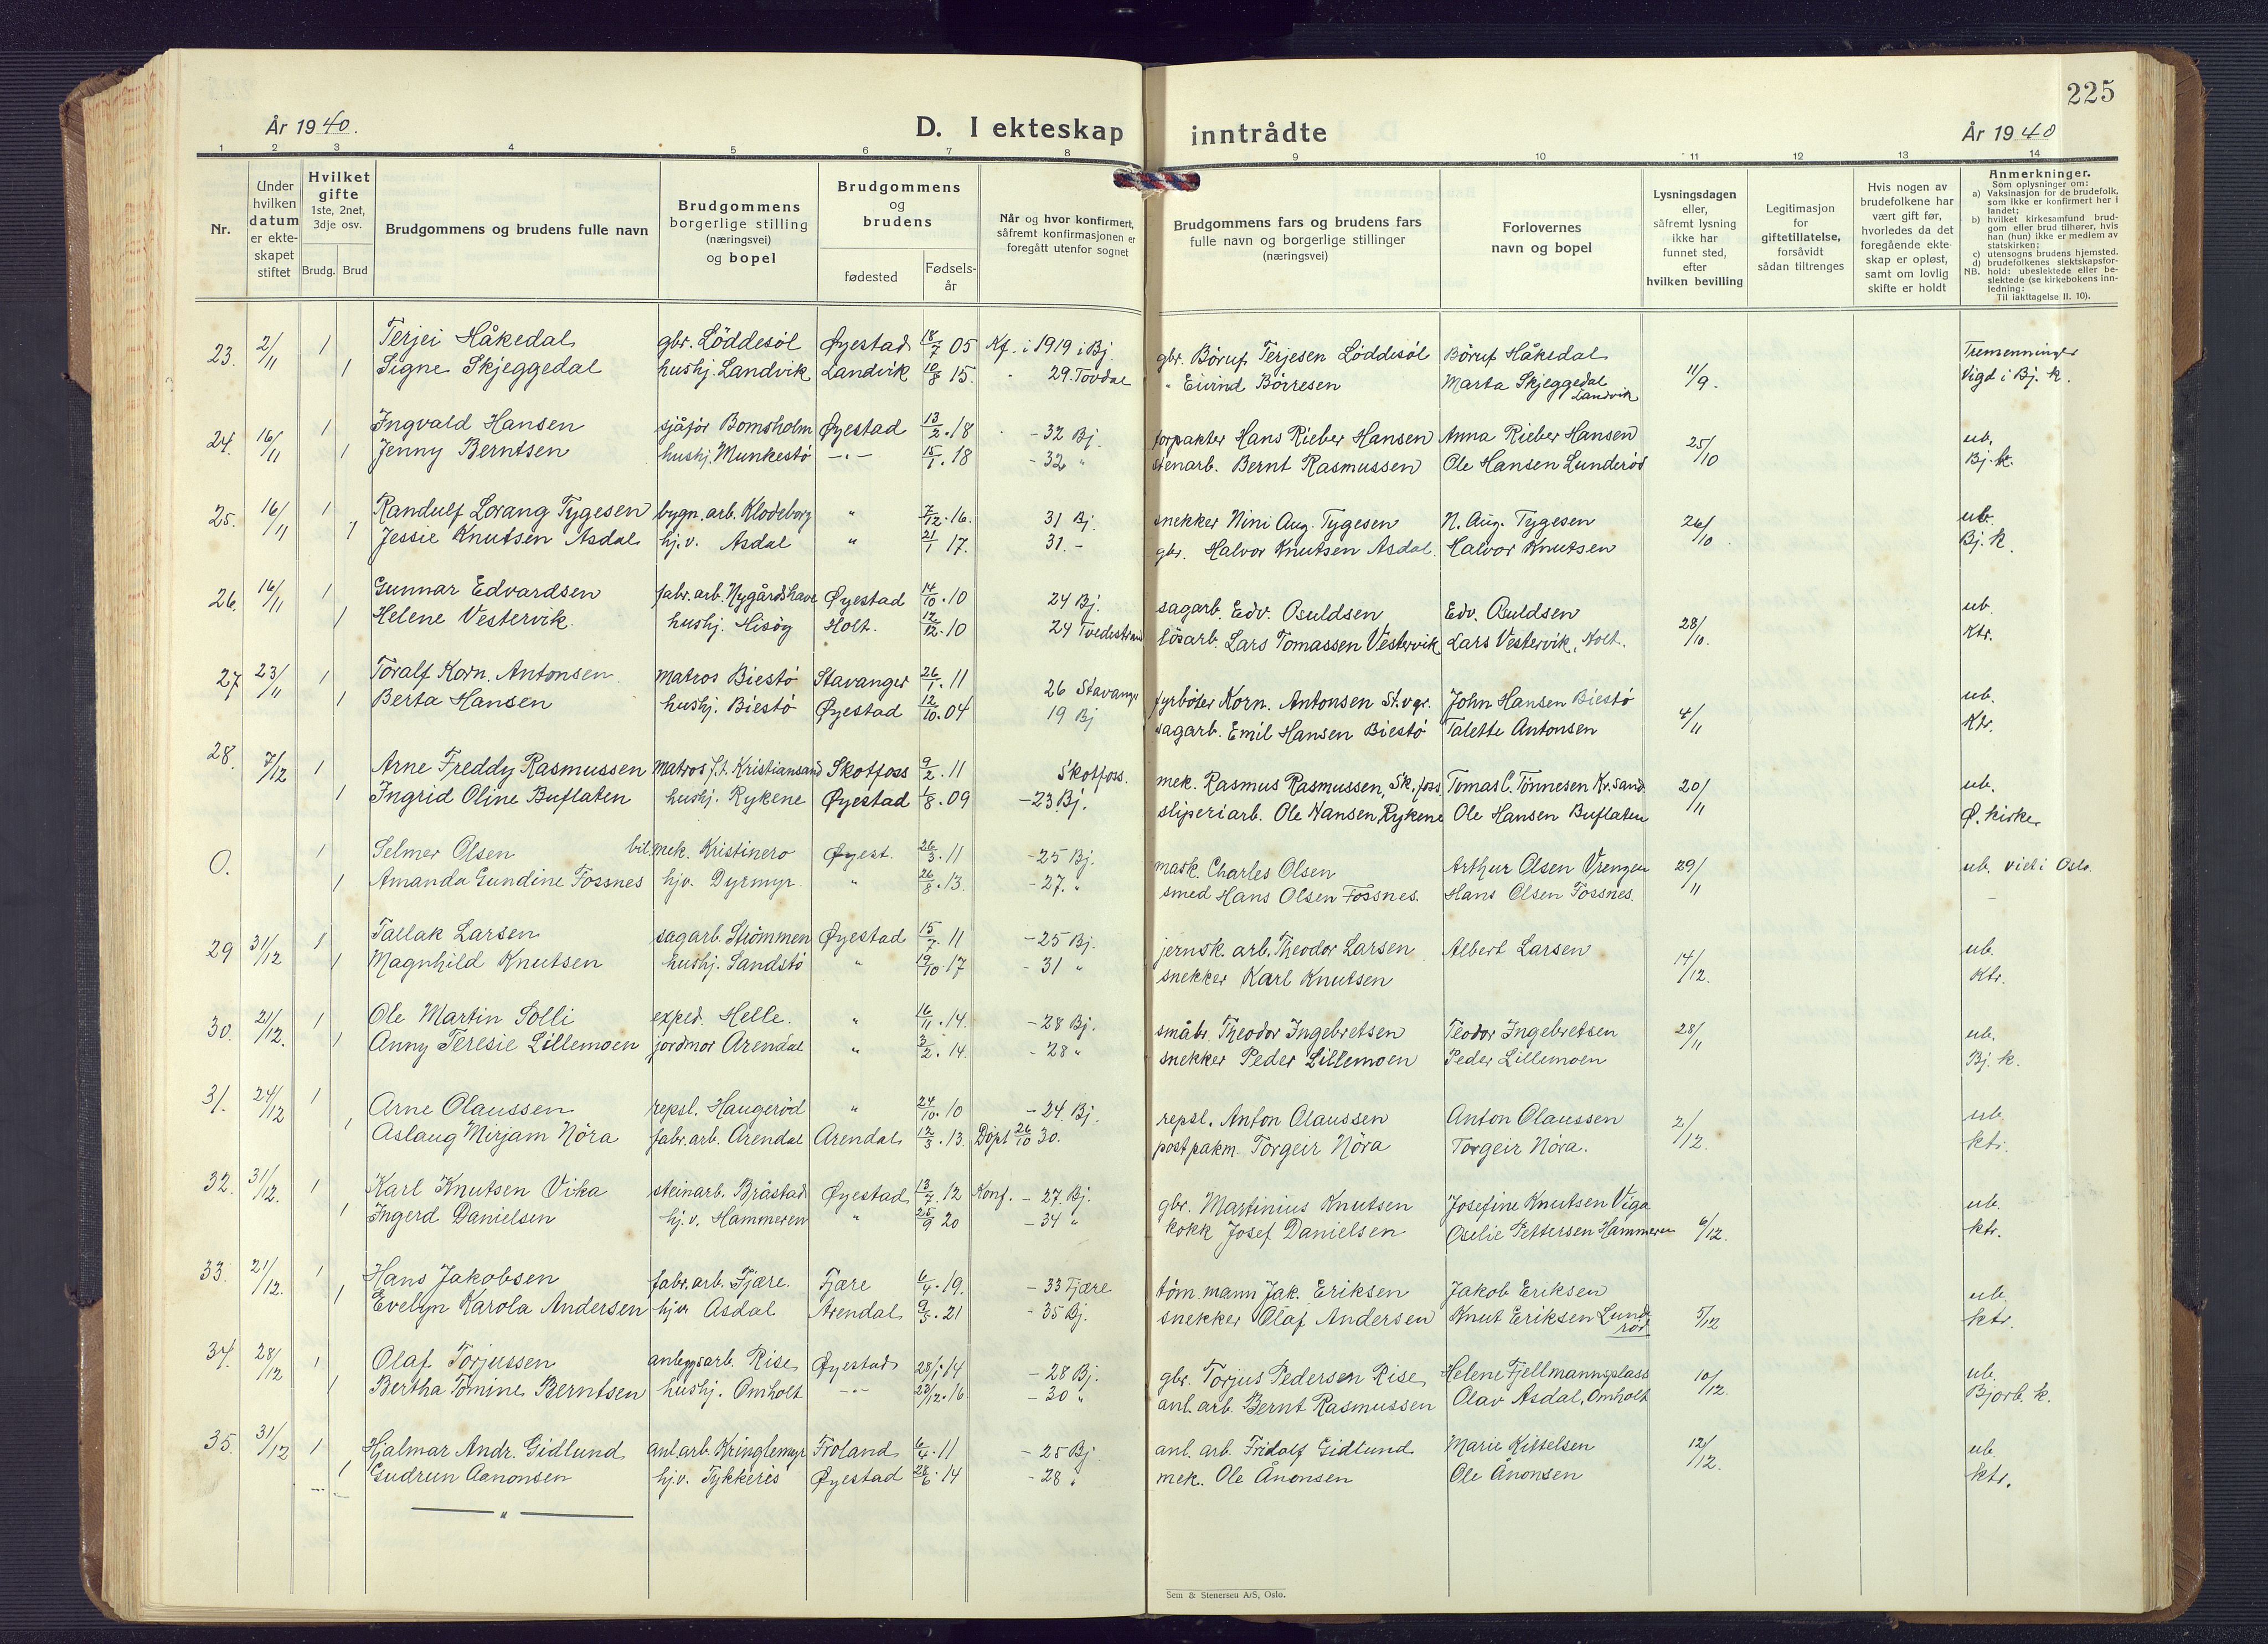 225
År 1940.
D. I ekteskap inntrådte
År 1940
1 2 3 4 5 6 7 8 9 10 11 12 13 14
Nr.
Under
hvilken
datum
er ekte-
skapet
stiftet
Hvilket
gifte
1ste, 2net,
3dje osv.
Brudg. Brud
Brudgommens og brudens fulle navn
Brudgommens
borgerlige stilling
(næringsvei)
og bopel
Brudgommens
og
brudens
fødested
Fødsels-
år
Når og hvor konfirmert,
såfremt konfirmasjonen er
foregått utenfor sognet
Brudgommens fars og brudens fars
fulle navn og borgerlige stillinger
(næringsvei)
Forlovernes
navn og bopel
Lysningsdagen
eller,
såfremt lysning
ikke har
funnet sted,
efter
hvilken bevilling
Legitimasjon
for
giftetillatelse,
forsåvidt
sådan tiltrenges
Hvis nogen av
brudefolkene har
vært gift før,
hvorledes da det
foregående ekte-
skap er opløst,
samt om lovlig
skifte er holdt
Anmerkninger.
Som oplysninger om:
a) Vaksinasjon for de brudefolk,
som ikke er konfirmert her i
landet;
b) hvilket kirkesamfund brud-
gom eller brud tilhører, hvis
han (hun) ikke er medlem av
statskirken;
c) utensogns brudens hjemsted.
d) brudefolkenes slektskapsfor-
NB. hold: ubeslektede eller be-
slektede (se kirkebokens inn-
ledning:
Til iakttagelse II. 10).
23. 2/11 1 Terjei Håkedal gbr. Löddesöl Øyestad 18/7 05 Kf. i 1919 i Bj. gbr. Böruf Terjesen Löddesöl Böruf Håkedal 11/9. Tremenninger
1 Signe Skjeggedal hushj. Landvik Landvik 10/8 15. " 29. Tovdal " Eivind Börresen Marta Skjeggedal Landvik Vigd i Bj. k.
24. 16/11 1 Ingvald Hansen sjåför Bomsholm Øyestad 13/2.18 - 32 Bj. forpakter Hans Rieber Hansen Anna Rieber Hansen 25/10 ub.
1 Jenny Berntsen hushj. Munkestö -"- 15/1.18 - 32 " stenarb. Bernt Rasmussen Ole Hansen Lunderöd Bj. k.
25. 16/11 1 Randulf Lorang Tygesen bygn. arb. Klodeborg " 7/12.16. 31 Bj. snekker Nini Aug. Tygesen N. Aug. Tygesen 26/10 ub.
1 Jessie Knutsen Asdal hj.v. Asdal " 21/1 17. 31. - gbr. Halvor Knutsen Asdal. Halvor Knutsen Bj. k.
26. 16/11 1 Gunnar Edvardsen fabr. arb. Nygårdshave Øyestad 14/10.10 24 Bj. sagarb. Edv. Osuldsen Edv. Osuldsen 28/10. ub.
1 Helene Vestervik. hushj. Hisöy Holt. 12/12.10 24 Tvedestrand lösarb. Lars Tomassen Vestervik Lars Vestervik, Holt. Ktr.
27 23/11 1 Toralf Korn. Antonsen. matros Biestö Stavanger 26/1.11 26 Stavanger fyrböter Korn. Antonsen St.vgr. John Hansen Biestö 4/11 ub.
1 Berta Hansen hushj. Biestö Øyestad 12/10.04 19 Bj sagarb. Emil Hansen Biestö Talette Antonsen Ktr.
28. 7/12 1 Arne Freddy Rasmussen Matros f.t. Kristiansand Skotfoss 9/2.11 Skotfoss. mek. Rasmus Rasmussen, Sk.foss Tomas C. Tönnesen Kr.sand 20/11 ub.
1 Ingrid Oline Buflaten hushj. Rykene Øyestad 1/8.09 -23 Bj. sliperiarb. Ole Hansen, Rykene Ole Hansen Buflaten Ø. kirke
O. 1 Selmer Olsen bil.mek. Kristinero Øyest. 26/3.11 -25 Bj. mask. Charles Olsen Arthur Olsen Vrengen 29/11 ub. viet i Oslo.
1 Amanda Gundine Fossnes hjv. Dyrmyr. " 26/8.13. -27. " smed Hans Olsen Fossnes. Hans Olsen Fossnes.
29 31/12 1 Tallak Larsen sagarb. Strömmen Øyestad 15/7.11 -25 Bj. jernsk. arb. Theodor Larsen Albert Larsen 14/12. ub.
1 Magnhild Knutsen hushj. Sandstö " 19/10.17 - 31 " snekker Karl Knutsen Ktr.
30. 21/12. 1 Ole Martin Solli exped. Helle. " 16/11.14. -28 Bj. småbr. Theodor Ingebretsen Teodor Ingebretsen 28/11 ub.
1 Anny Teresie Lillemoen jordmor Arendal " 3/2.14. - 28 " snekker Peder Lillemoen Peder Lillemoen Bj. k.
31. 24/12 1 Arne Olaussen repsl. Haugeröd " 24/10.10 -24 Bj. repsl. Anton Olaussen Anton Olaussen 2/12. ub.
1 Aslaug Mirjam Nöra fabr. arb. Arendal Arendal 12/3.13. Döpt 26/10 30. postpakm. Torgeir Nöra Torgeir Nöra. ktr.
32. 31/12. 1 Karl Knutsen Vika steinarb. Bråstad Øyestad 13/7.12 Konf. - 27. Bj. gbr. Martinius Knutsen Josefine Knutsen Viga 6/12. ub.
1 Ingerd Danielsen hj.v. Hammeren " 25/9 20 - 34 " kokk Josef Danielsen Oselie Pettersen Hammeren ktr.
33. 21/12. 1 Hans Jakobsen fabr. arb. Fjære. Fjære 6/4.19. - 33 Fjære töm.mann Jak. Eriksen Jakob Eriksen 5/12 ub.
1 Evelyn Karola Andersen hjv Asdal Arendal 9/5.21 - 35 Bj. snekker Olaf Andersen Knut Eriksen Lunderöd ktr.
34. 28/12 1 Olaf Torjussen anleggsarb. Rise Øyestad 28/1.14 - 28 Bj. gbr. Torjus Pedersen Rise Helene Fjellmannsplass 10/12. ub.
1 Bertha Tomine Berntsen hushj. Omholt -"- 23/12.16 - 30 " anl. arb. Bernt Rasmussen Olav Asdal, Omholt Bjorb. k.
35. 31/12 1 Hjalmar Andr. Gidlund anl.arb. Kringlemyr Froland 6/4.11 - 25 Bj anl. arb. Fridolf Gidlund Marie Kittelsen 12/12. ub
1 Gudrun Aanonsen hj.v. Tykkeris Øyestad 28/6.14 - 28 " mek. Ole Ånonsen Ole Ånonsen ktr.
Sem & Stenersen A/S, Oslo.